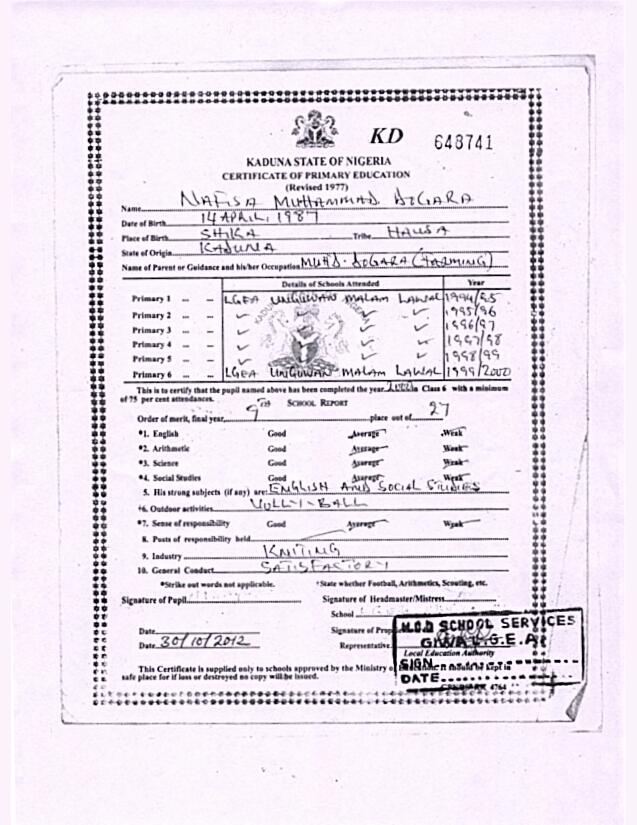 KD 648741
KADUNA STATE OF NIGERIA
CERTIFICATE OF PRIMARY EDUCATION
(Revised 1977)
Name NAFISA MUHAMMAD DOGARA
Date of Birth 14 APRIL, 1987
Place of Birth SHIKA Tribe HAUSA
State of Origin KADUNA
Name of Parent or Guidance and his/her Occupation MUHD. DOGARA (FARMING)
Details of Schools Attended Year
Primary 1 LGEA UNGUWAN MALAM LAWAL 1994/95
Primary 2 ✓ ✓ ✓ ✓ 1995/96
Primary 3 ✓ ✓ ✓ ✓ 1996/97
Primary 4 ✓ ✓ ✓ ✓ 1997/98
Primary 5 ✓ ✓ ✓ ✓ 1998/99
Primary 6 LGEA UNGUWAN MALAM LAWAL 1999/2000
This is to certify that the pupil named above has been completed the year 2000 Class 6 with a minimum
of 75 per cent attendances.
SCHOOL REPORT
Order of merit, final year, 9TH place out of 27
*1. English Good Average Weak
*2. Arithmetic Good Average Weak
*3. Science Good Average Weak
*4. Social Studies Good Average Weak
5. His strong subjects (if any) are: ENGLISH AND SOCIAL STUDIES
†6. Outdoor activities VOLLY-BALL
*7. Sense of responsibility Good Average Weak
8. Posts of responsibility held
9. Industry KNITING
10. General Conduct SATISFACTORY
*Strike out words not applicable. †State whether Football, Arithmetics, Scouting, etc.
Signature of Pupil Signature of Headmaster/Mistress
School
Date Signature of
Date 30/10/2012 Representative
H.O.D SCHOOL SERVICES
GIWA L.G.E.A.
Local Education Authority
SIGN
DATE
This Certificate is supplied only to schools approved by the Ministry of It should be kept in
safe place for if loss or destroyed no copy will be issued.